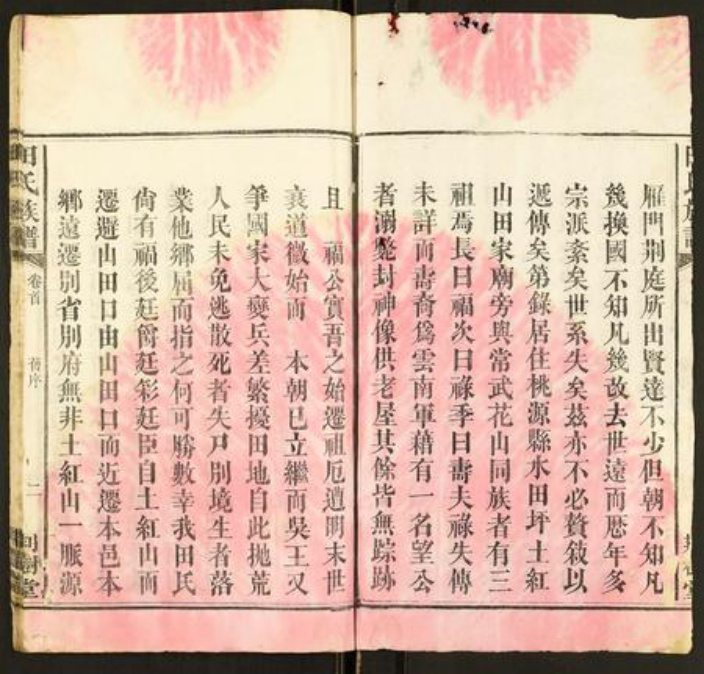 雁門荆庭所出賢達不少但朝不知凡
幾換國不知凡幾改去世遠而厯年多
宗派紊矣世系失矣茲亦不必贅敍以
遞傳矣第錄居住桃源縣水田坪土紅
山田家廟旁與常武花山同族者有三
祖焉長曰福次曰祿季曰壽夫祿失傳
未詳而壽裔爲雲南軍藉有一名望公
者溺斃封神像供老屋其餘皆無踪跡
且 福公實吾之始遷祖厄遭明末世
衰道微始而 本朝已立繼而吳王又
爭國家大變兵差繁擾田地自此抛荒
人民未免逃散死者失尸別境生者落
業他鄉屈而指之何可勝數幸我田氏
尙有福後廷爵廷彩廷臣自土紅山而
遷避山田口由山田口而近遷本邑本
鄉遠遷別省別府無非土紅山一脈源
田氏族譜
卷首
舊序
二